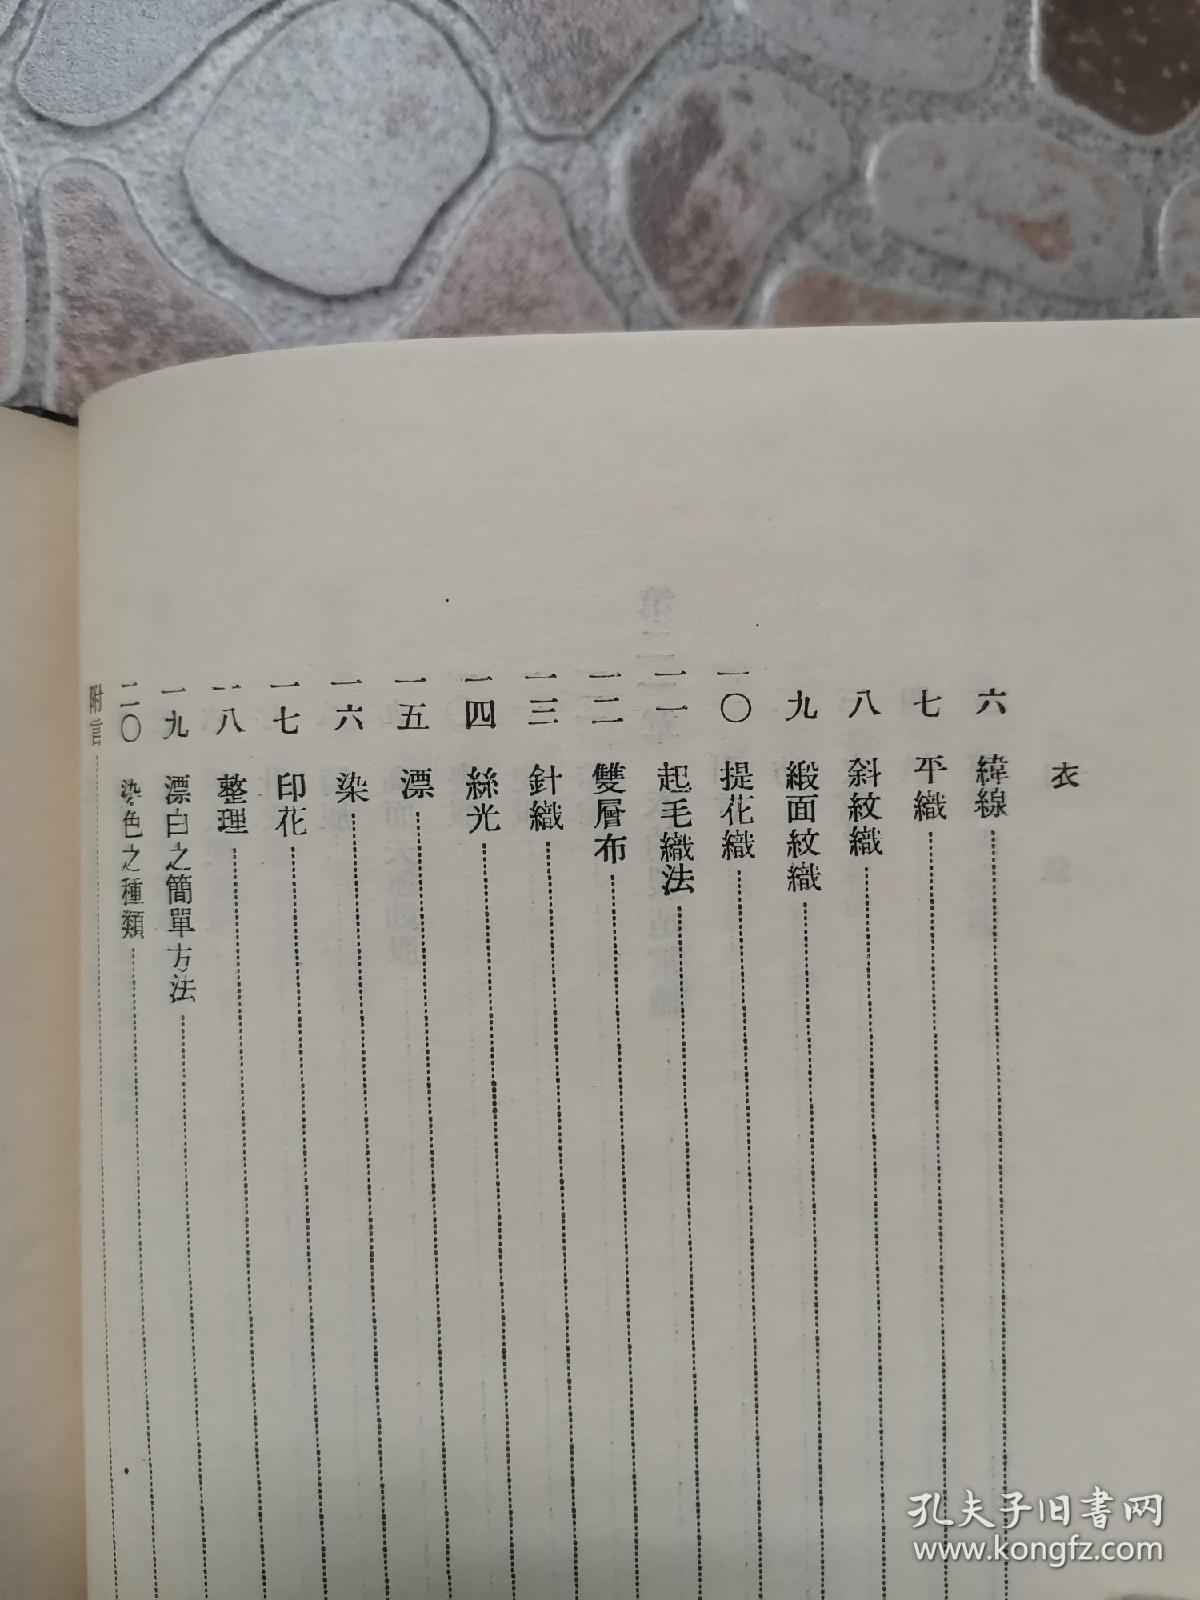 衣
六　緯線
七　平織
八　斜紋織
九　緞面紋織
一〇　提花織
一一　起毛織法
一二　雙層布
一三　針織
一四　絲光
一五　漂
一六　染
一七　印花
一八　整理
一九　漂白之簡單方法
二〇　染色之種類
附言
孔夫子旧书网
www.kongfz.com